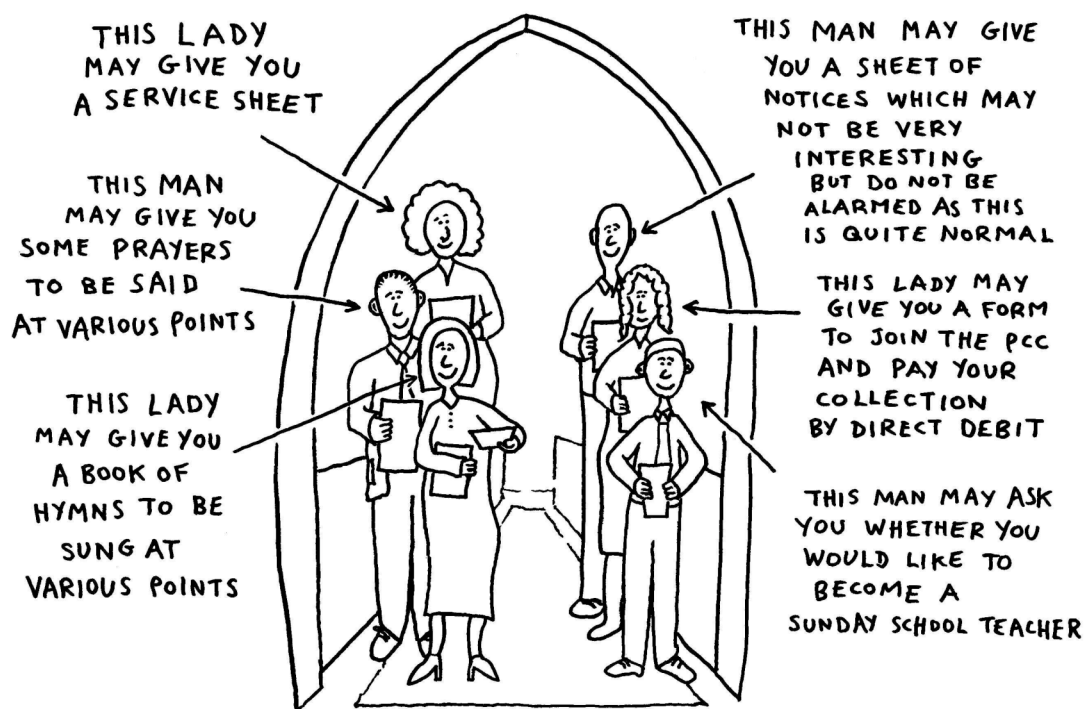 THIS LADY
MAY GIVE YOU
A SERVICE SHEET
THIS MAN
MAY GIVE YOU
SOME PRAYERS
TO BE SAID
AT VARIOUS POINTS
THIS LADY
MAY GIVE YOU
A BOOK OF
HYMNS TO BE
SUNG AT
VARIOUS POINTS
THIS MAN MAY GIVE
YOU A SHEET OF
NOTICES WHICH MAY
NOT BE VERY
INTERESTING
BUT DO NOT BE
ALARMED AS THIS
IS QUITE NORMAL
THIS LADY MAY
GIVE YOU A FORM
TO JOIN THE PCC
AND PAY YOUR
COLLECTION
BY DIRECT DEBIT
THIS MAN MAY ASK
YOU WHETHER YOU
WOULD LIKE TO
BECOME A
SUNDAY SCHOOL TEACHER